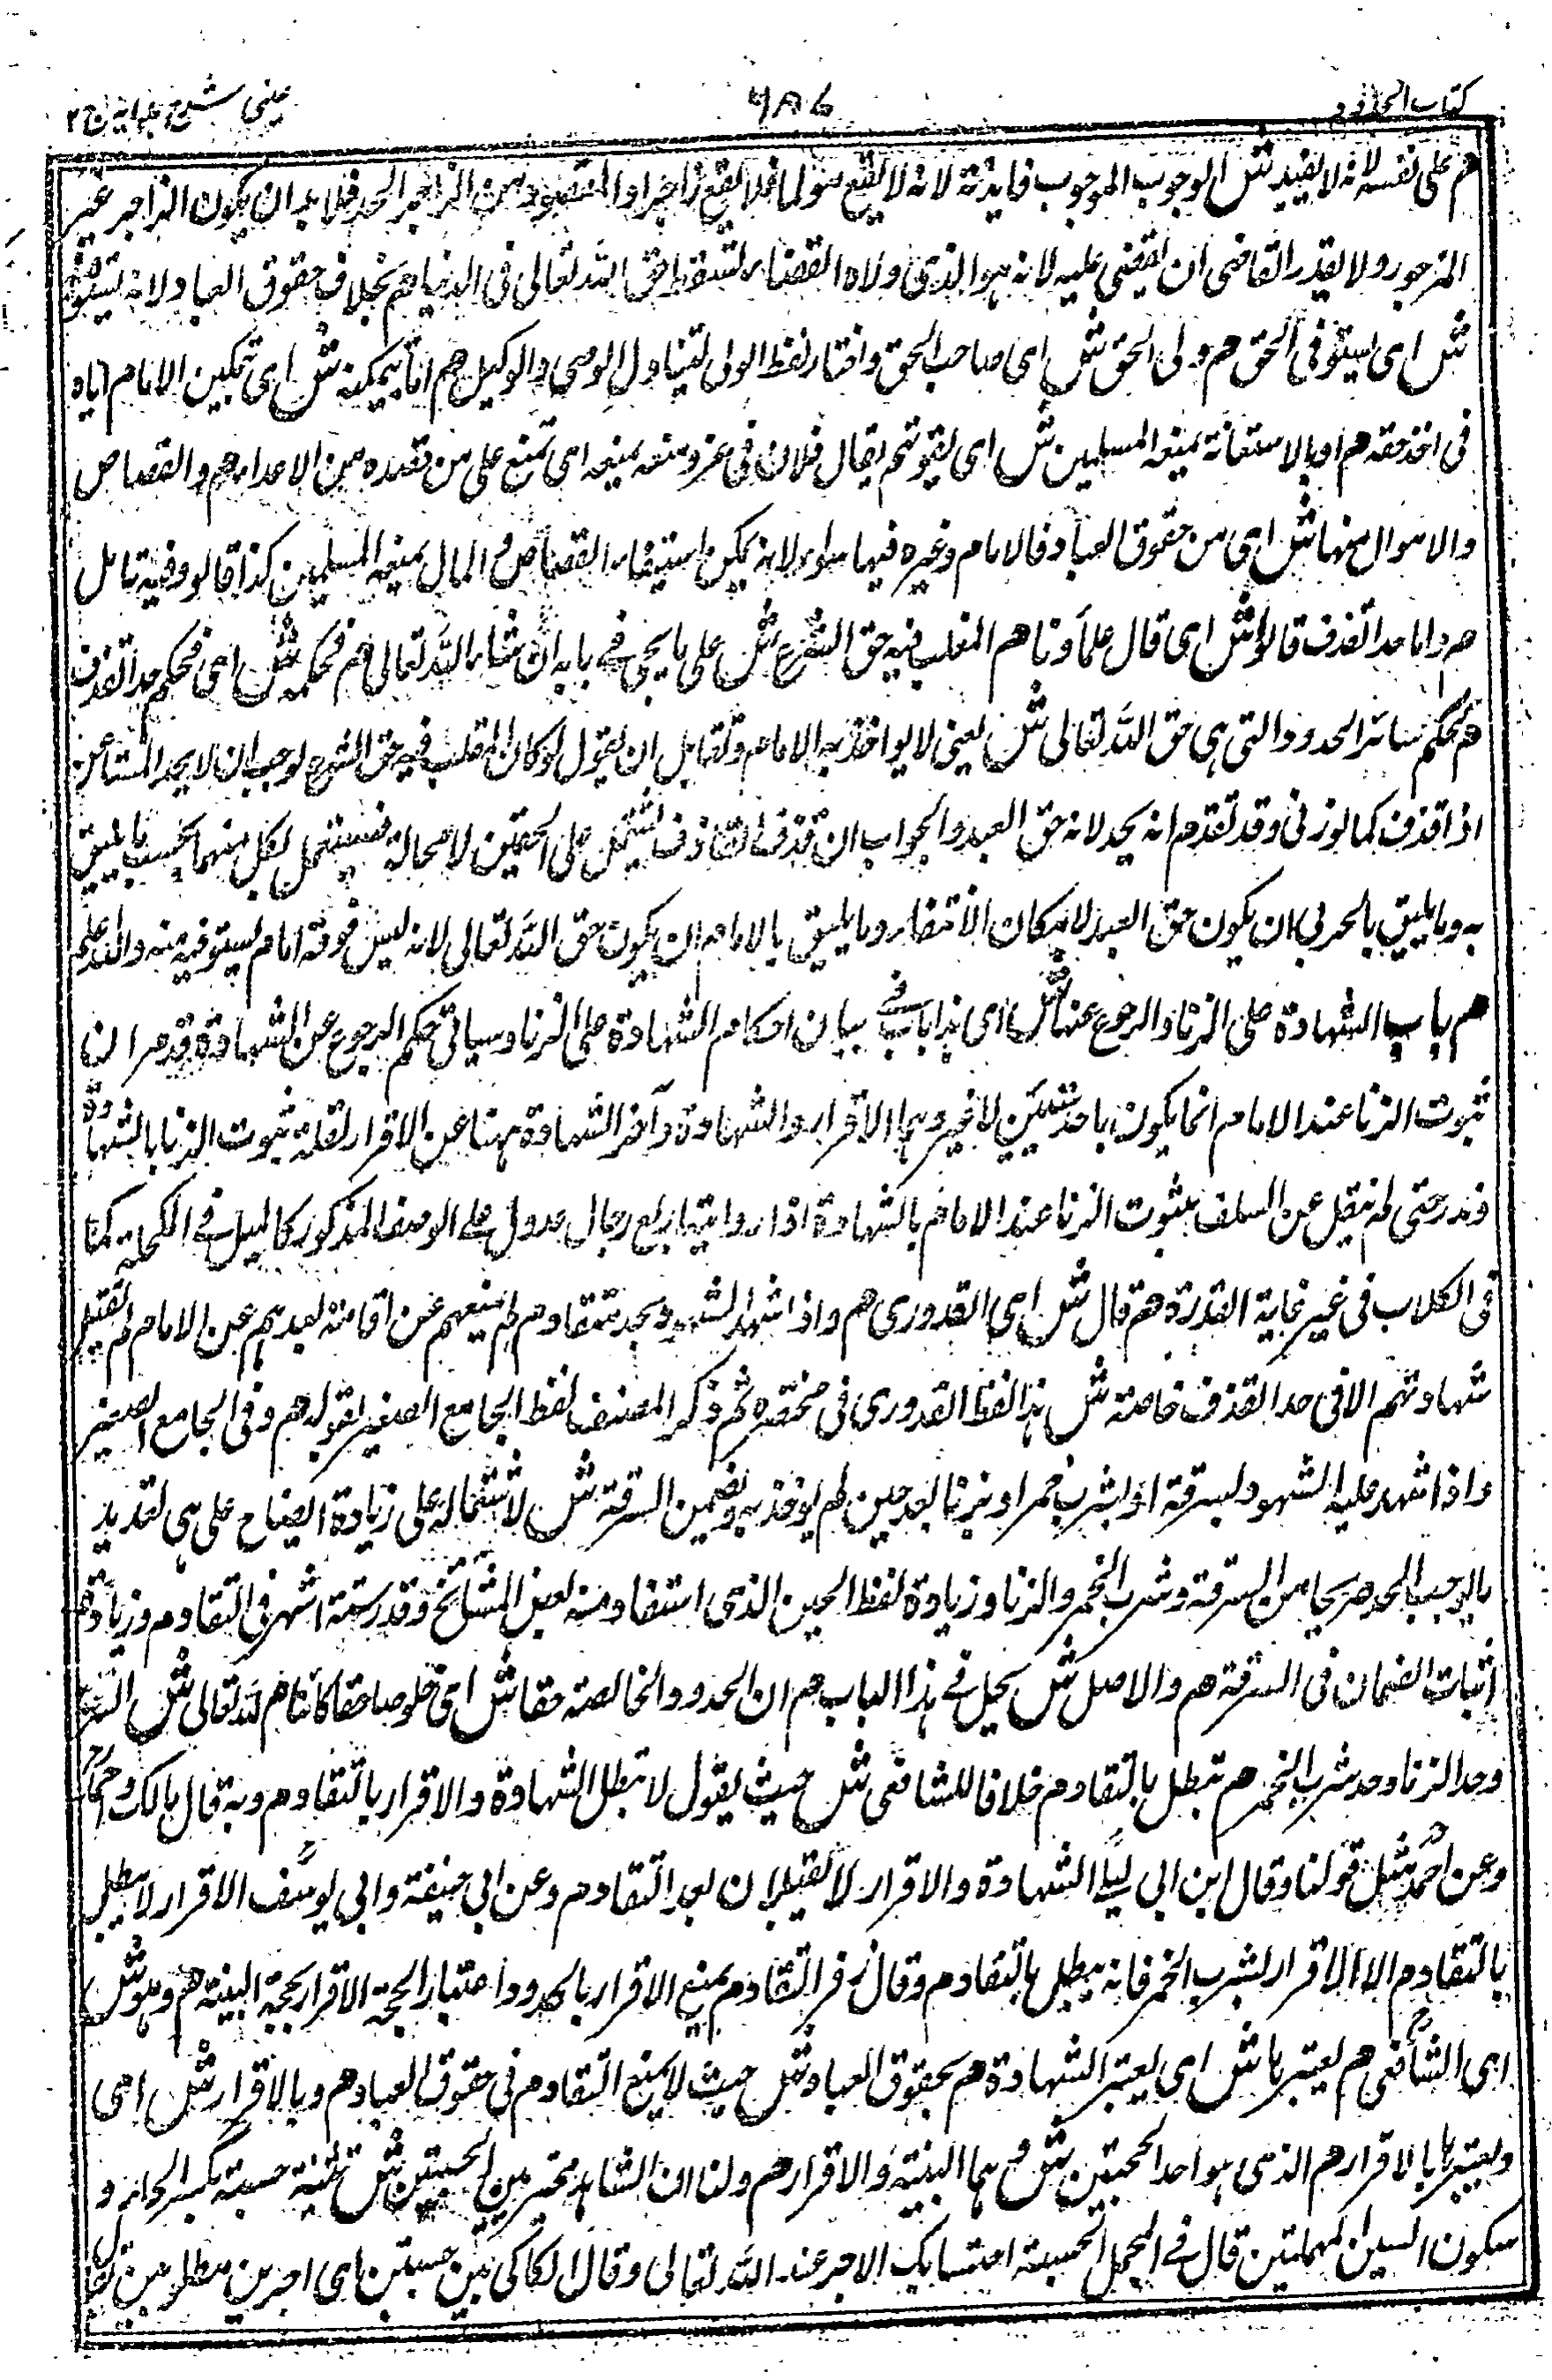 كتاب الحدود
٦٨٧
عینی شرح ہدایہ ج ٢
هم على نفسه لانه لا يفيد ش الوجوب فايدته لانه لا يقع زاجرا والمقصود من الزاجر الحد فلا بد ان يكون الزاجر غير
المزجور ولا يقدر القاضى ان يقضى عليه لانه هو الذى ولاه القضاء لتسقط حق الله تعالى فى الدنيا هم بخلاف حقوق العباد لانه يستوفيه
ش اى يستوفى الحق هم ولى الحق ش اى صاحب الحق واختار لفظ الولى ليتناول الوصى والوكيل هم اما بتمكينه ش اى تمكين الامام اياه
فى اخذ حقه هم او بالاستعانة بمنعة المسلمين ش اى بقوتهم يقال فلان فى عز ومنعه بمنعه اى تمنع على من قصده من الاعداء هم والقصاص
والاموال منها ش اى من حقوق العباد فالامام وغيره فيها سواء لانه يمكن استيفاء القصاص و المال بمنعة المسلمين كذا قالو وفيه تامل
هم واما حد القذف قالوا ش اى قال علماؤنا هم المغلب فيه حق الشرع ش على ما يجئ فے بابه ان شاء الله تعالى هم فحكمه ش اى فحكم حد القذف
هم كحكم سائر الحدود التى هى حق الله تعالى ش يعنى لا يواخذ به الامام ولقائل ان يقول لو كان المغلب فيه حق الشرع لوجب ان لا يحد المستأمن
اذا قذف كما لو زنى وقد تقدم انه يحد لانه حق العبد والجواب ان قذف القاذف يشتمل على الحقين لا محالة فيستعمل لكل منهما بحسب ما يليق
به وما يليق بالحربى ان يكون حق العبد لامكان الاقتضاء وما يليق بالامام ان يكون حق الله تعالى لانه ليس فوقه امام يستوفيه منه والله اعلم
هم باب الشهادة على الزنا والرجوع عنها ش اى هذا باب فے بيان احكام الشهادة على الزنا وسيأتى حكم الرجوع عن الشهادة وقد مر ان
ثبوت الزنا عند الامام انما يكون باحد شيئين لا غير وهما الاقرار والشهادة وآخر الشهادة ههنا عن الاقرار لقلة ثبوت الزنا بالشهادة
وندر حتى لم ينقل عن السلف بثبوت الزنا عند الامام بالشهادة اذا رواية اربع رجال عدول على الوصف المذكور كالميل فے المكحلة كما
فى الكلاب فى غير غاية القدرة هم قال ش اى القدورى هم واذا شهد الشهود بحد متقادم لم يمنعهم عن اقامته بعدهم عن الامام لم تقبل
شهادتهم الا فى حد القذف خاصة ش هذا لفظ القدورى فى مختصره ثم ذكر المصنف لفظ الجامع الصغير بقوله هم وفى الجامع الصغير
واذا شهد عليه الشهود بسرقة او بشرب خمر او بزنا بعد حين لم يؤخذ به وضمن السرقة ش لاشتماله على زيادة ايضاح على هى تعديد
ما يوجب الحد صريحا من السرقة وشرب الخمر والزنا وزيادة لفظ الحين الذى استفاد منه بعض المشايخ وقدر ستة اشهر فى التقادم وزيادة
اثبات الضمان فى السرقة هم والاصل ش فے هذا الباب هم ان الحدود الخالصة حقا ش اى خلوصا حقا كائنا هم لله تعالى ش
وحد الزنا وحد شرب الخمر هم تبطل بالتقادم خلافا للشافعى ش حيث يقول لا تبطل الشهادة والاقرار بالتقادم وبه قال مالك واحمد
وعن احمد مثل قولنا وقال ابن ابى ليلى الشهادة والاقرار لا يقبلان بعد التقادم وعن ابى حنيفة وابى يوسف الاقرار لا يبطل
بالتقادم الا الاقرار بشرب الخمر فانه يبطل بالتقادم وقال زفر التقادم يمنع الاقرار بالحدود اعتبار الحجة الاقرار بحجة البينة هم وهو ش
اى الشافعى هم يعتبرها ش اى يعتبر الشهادة هم بحقوق العباد ش حيث لا يمنع التقادم فى حقوق العباد هم وبالاقرار ش اى
ويعتبرها بالاقرار هم الذى هو احد الحجتين ش وهما البينة والاقرار هم ولنا ان الشاهد مخير بين الحسبتين ش تثنية حسبة بكسر الحاء و
سكون السين المهملتين قال فے المجمل الحسبة احتسابك الاجر عند الله تعالى وقال الكاكى بين حسبتين اى اجرين مطلوبين